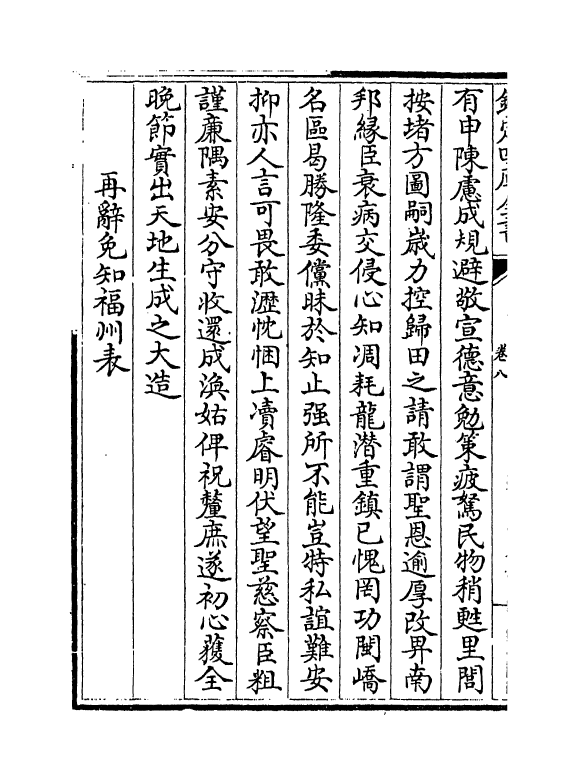 卷八
有申陳慮成規避敬宣德意勉策疲駑民物稍甦里閭
按堵方圖嗣歲力控歸田之請敢謂聖恩逾厚改畀南
邦緣臣衰病交侵心知凋耗龍潛重鎮已愧罔功閩嶠
名區曷勝隆委儻昧於知止强所不能豈特私誼難安
抑亦人言可畏敢瀝忱悃上凟睿明伏望聖慈察臣粗
謹廉隅素安分守收還成渙姑俾祝釐庶遂初心蕧全
晚節實出天地生成之大造
再辭免知福州表